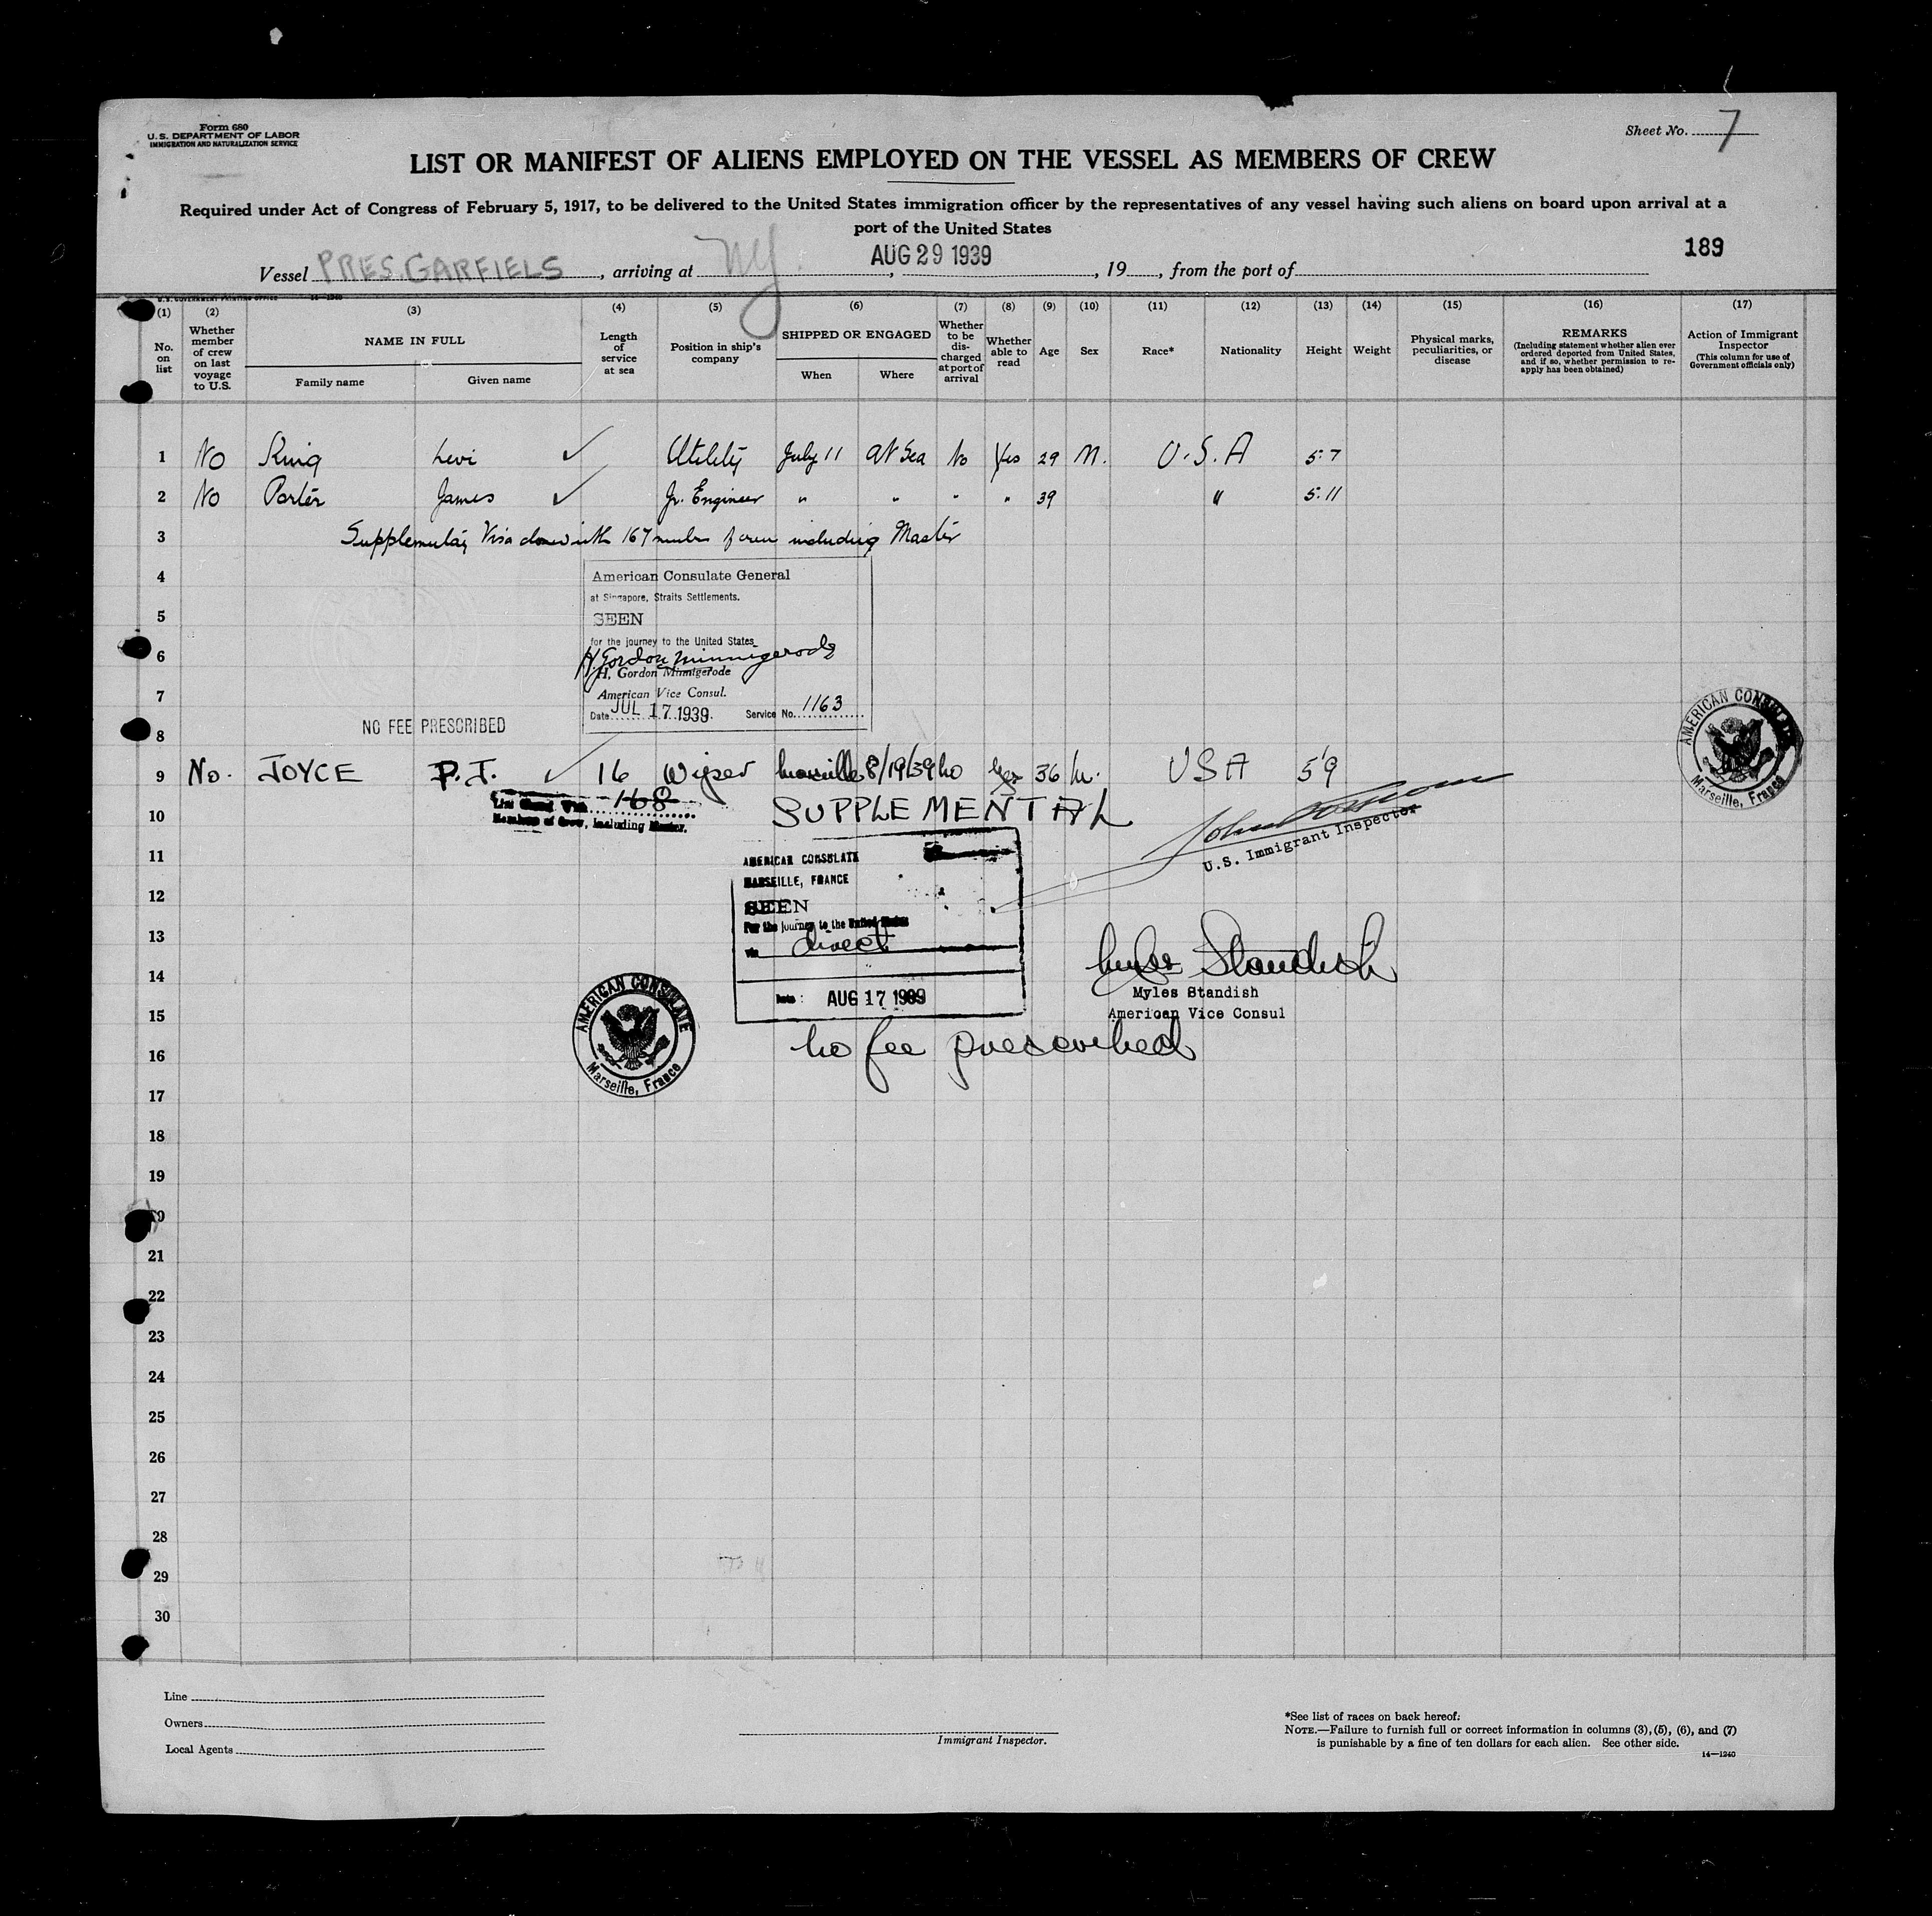 Form 680
U.S. DEPARTMENT OF LABOR
IMMIGRATION AND NATURALIZATION SERVICE
Sheet No. 7
LIST OR MANIFEST OF ALIENS EMPLOYED ON THE VESSEL AS MEMBERS OF CREW
Required under Act of Congress of February 5, 1917, to be delivered to the United States immigration officer by the representatives of any vessel having such aliens on board upon arrival at a
port of the United States
189
Vessel PRES. GARFIELS, arriving at NY, AUG 29 1939, 19, from the port of
U.S. GOVERNMENT PRINTING OFFICE 14—1240
(1) (2) (3) (4) (5) (6) (7) (8) (9) (10) (11) (12) (13) (14) (15) (16) (17)
No. on list
Whether member of crew on last voyage to U.S.
NAME IN FULL
Family name Given name
Length of service at sea
Position in ship's company
SHIPPED OR ENGAGED
When Where
Whether to be discharged at port of arrival
Whether able to read
Age Sex Race* Nationality Height Weight
Physical marks, peculiarities, or disease
REMARKS
(Including statement whether alien ever ordered deported from United States, and if so, whether permission to reapply has been obtained)
Action of Immigrant Inspector
(This column for use of Government officials only)
1 No King Levi ✓ Utility July 11 at Sea No Yes 29 M. U.S.A 5:7
2 No Porter James ✓ Jr. Engineer " " " " 39 " 5:11
3 Supplementary Visa with 167 members of crew including Master
4
American Consulate General
at Singapore, Straits Settlements.
5
SEEN
for the journey to the United States
6
H. Gordon Minnigerode
H. Gordon Minnigerode
7
American Vice Consul.
Date JUL 17 1939. Service No. 1163
NO FEE PRESCRIBED
8
AMERICAN CONSULATE
Marseille, France
9 No. JOYCE P.J. ✓ 16 Wiper Marseille 8/19/39 No Yes 36 M. USA 5'9
List Closed With 168
Members of Crew, including Master.
10 SUPPLEMENTAL
U.S. Immigrant Inspector
11
AMERICAN CONSULATE
MARSEILLE, FRANCE
12
SEEN
For the journey to the United States
13
via direct
Myles Standish
14
Myles Standish
Date: AUG 17 1939
15
American Vice Consul
AMERICAN CONSULATE
Marseille, France
16 No fee prescribed
17
18
19
19
21
22
23
24
25
26
27
28
29
30
Line
Owners
Local Agents
Immigrant Inspector.
*See list of races on back hereof.
NOTE.—Failure to furnish full or correct information in columns (3), (5), (6), and (7)
is punishable by a fine of ten dollars for each alien. See other side.
14—1240